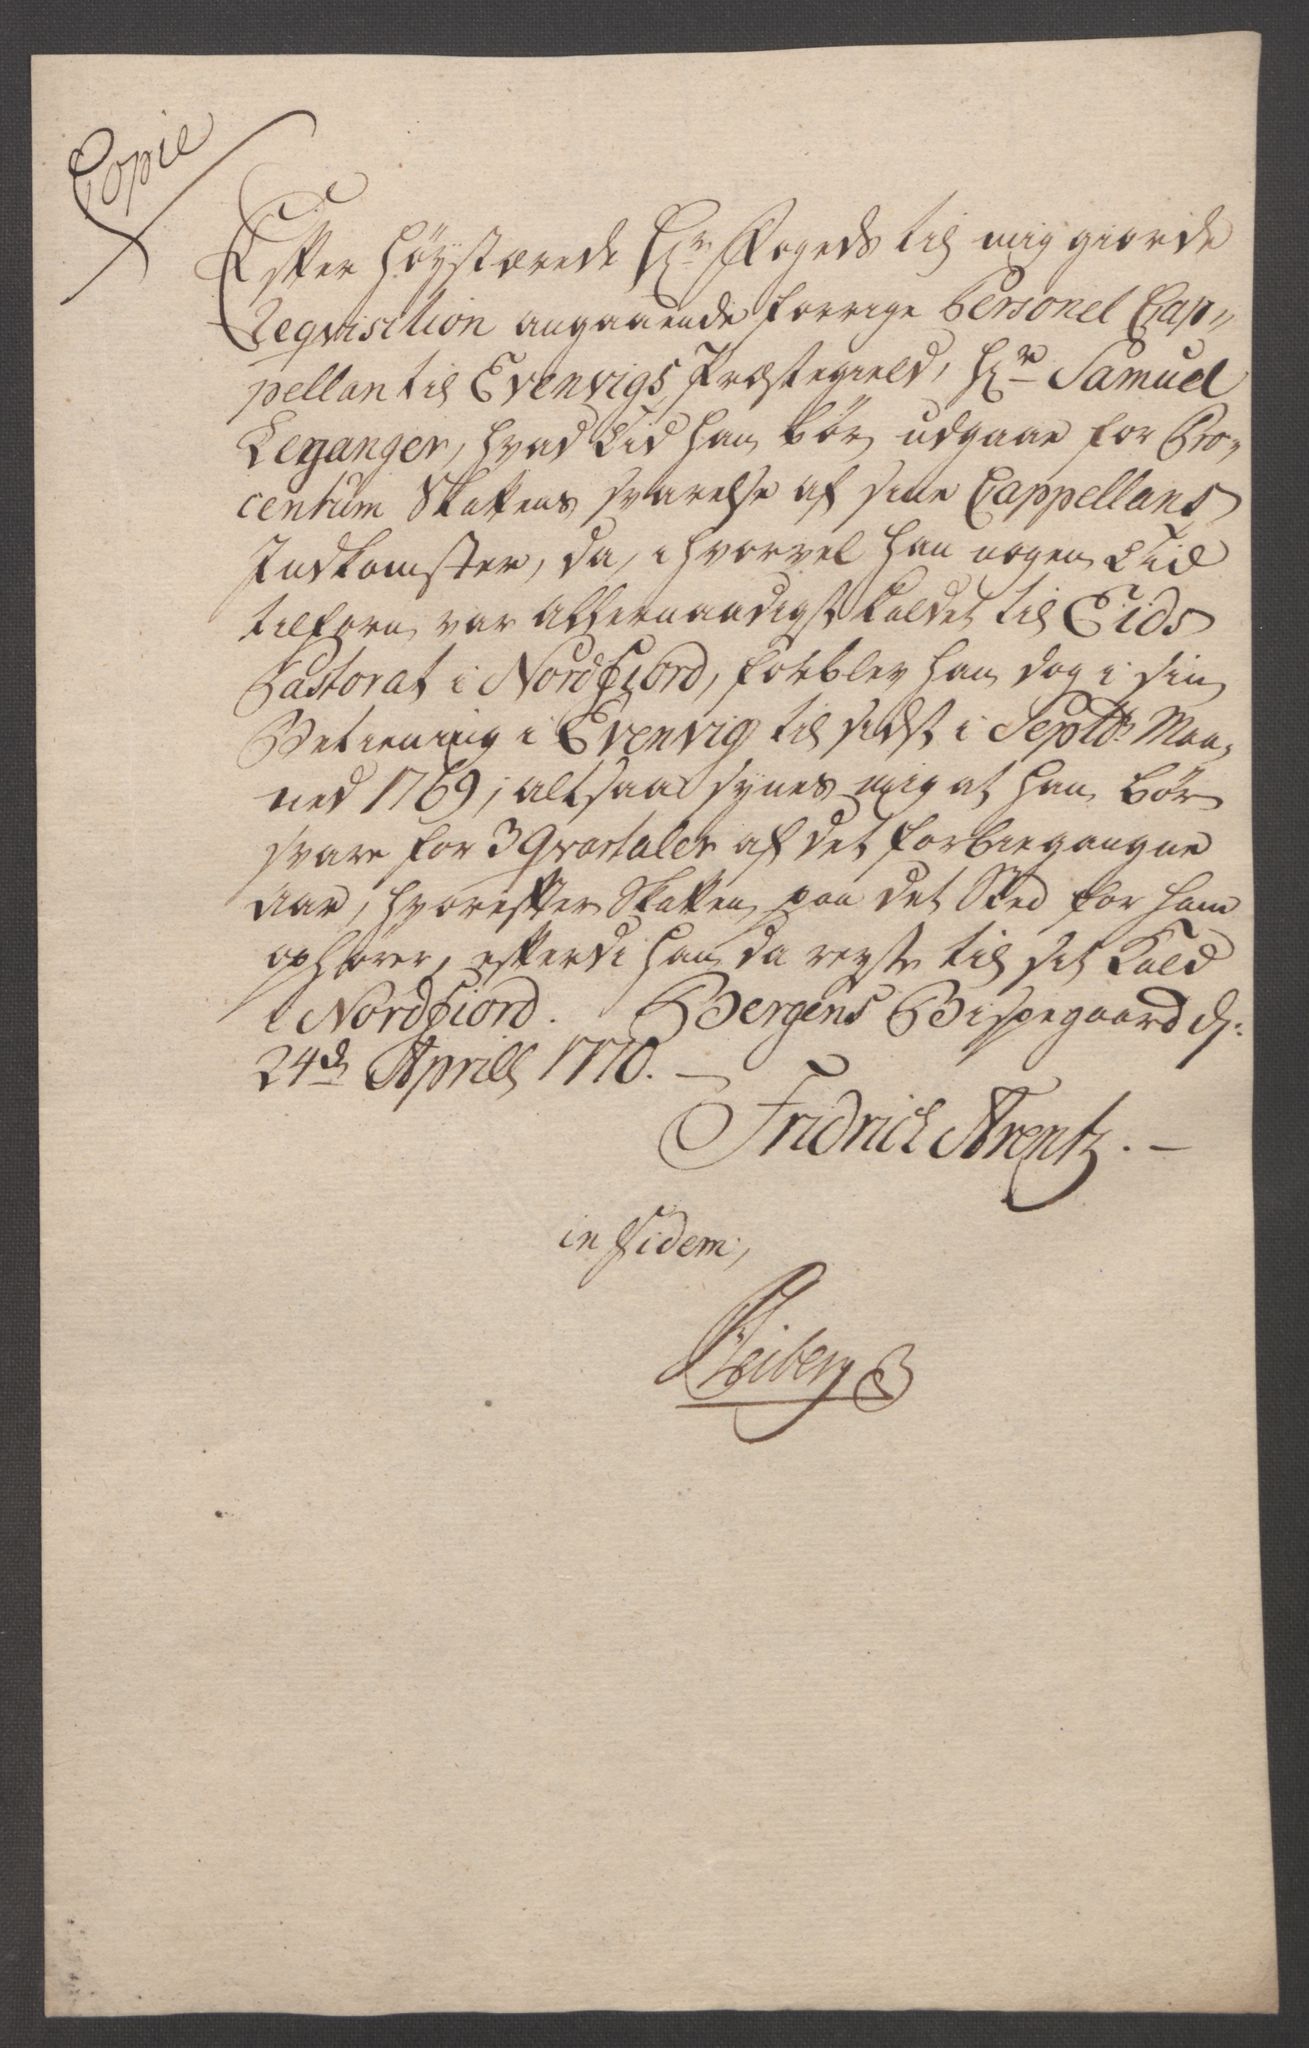 Copie
Efter Høystærede Hr. Fogeds til mig giorde
Reqvisition angaaende forrige Personel Cap„
pellan til Evenvigs Præstegield, Hr. Samuel
Leganger, hvad Tid han bør udgaae for Pro„
centum Skattens svarelse af sine Cappellans
Indkomster, da, ihvorvel han nogen Tid
tilforn var allernaadigst kaldet til Eids
Pastorat i Nordfiord, forblev han dog i sin
Betiening i Evenvig til sidst i Septbr. Maa„
ned 1769, altsaa synes mig at han bør
svare for 3 Qvartaler af det forbiegangne
Aar, hvorefter Skatten paa det Sted for ham
ophører, efterdi han da reyste til sit Kald
i Nordfiord. Bergens Bispegaard d:
24de Aprill 1770. —
Fridrich Arentz. —
in Fidem,
Heiberg